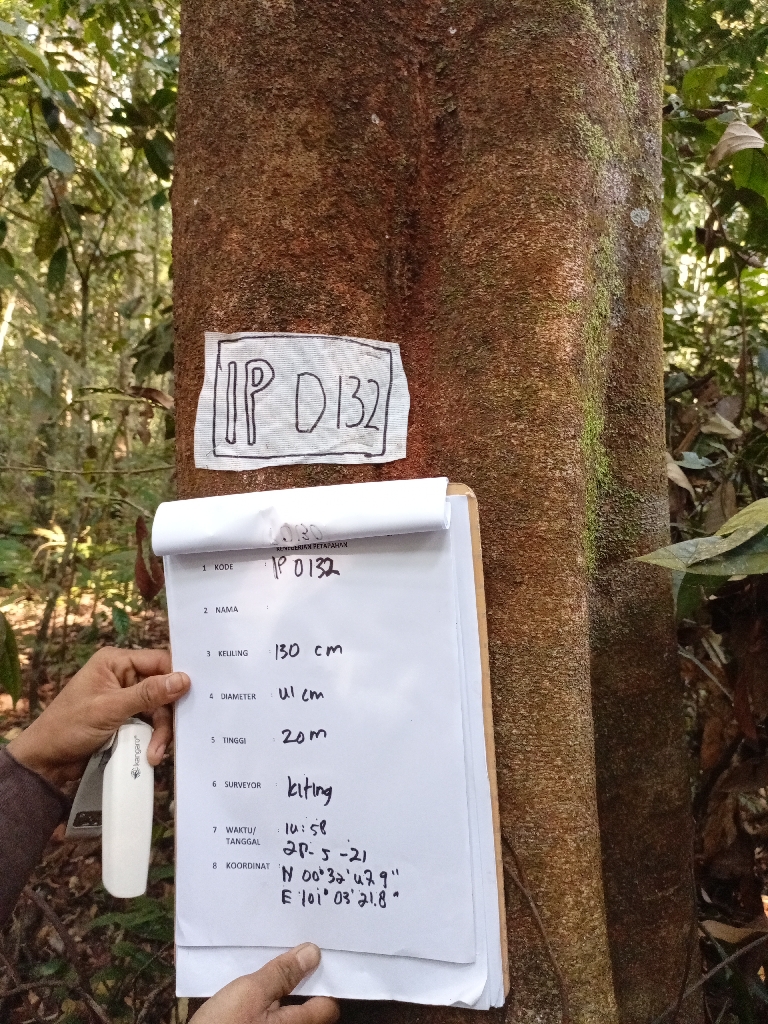 IP D132
KENEGERIAN PETAPAHAN
1 KODE : IP D132
2 NAMA :
3 KELILING : 130 cm
4 DIAMETER : 41 cm
5 TINGGI : 20m
6 SURVEYOR : kiting
7 WAKTU/ TANGGAL : 14:58
28-5-21
8 KOORDINAT N 00°32'47.9"
E 101°03'21.8"
kangaro